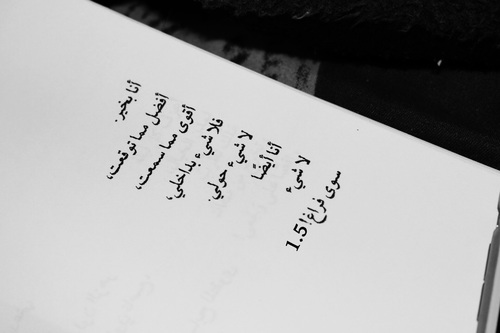 أنا بخير.
أفضل مما توقعت،
أقوى مما سمعت،
فلا شيء بداخلي،
لا شيء حولي.
أنا أيضًا
لا شيء
سوى فراغ! 1.5